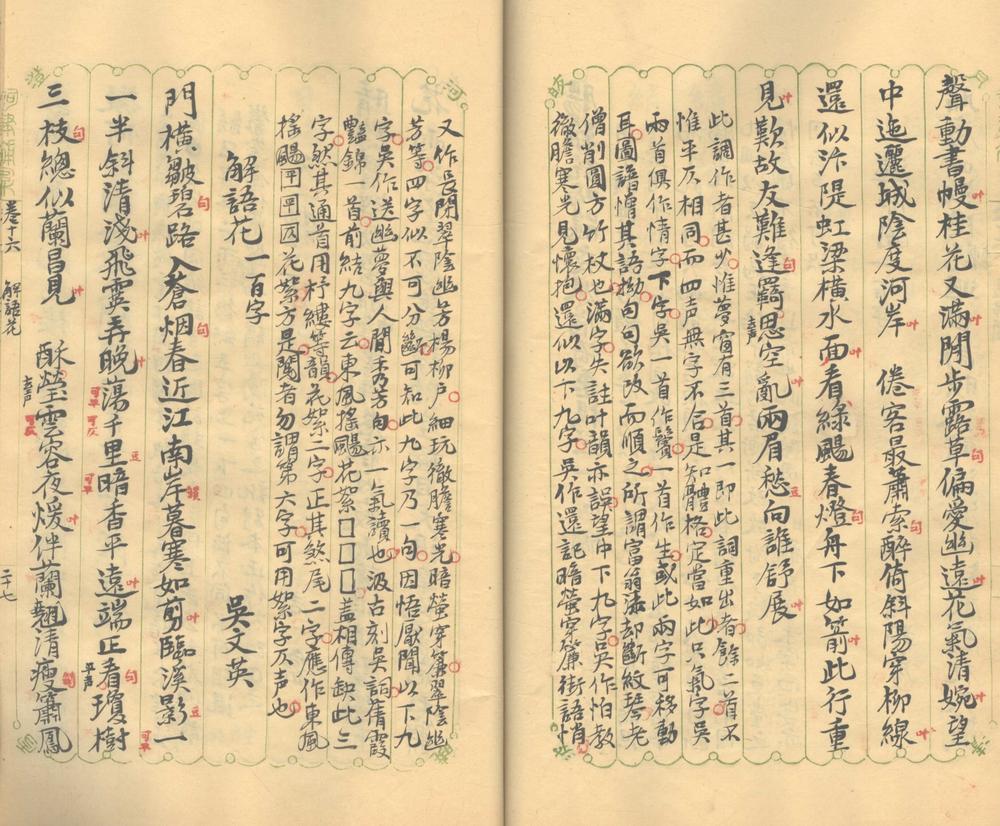 聲動書幔桂花又滿閒步露草偏愛幽遠花氣清婉望
中迤邐城陰度河岸　倦客最蕭索醉倚斜陽穿柳線
還似汴隄虹梁橫水面看綠颺春燈舟下如箭此行重
見歎故友難逢羇思空亂兩眉愁向誰舒展
此調作者甚少惟夢窗有三首其一即此詞重出者餘二首不
惟平仄相同而四声無字不合是知體格定當如此只氣字吳
兩首俱作情字下字吳一首作鬢一首作生或此兩字可移動
耳圖譜憎其語拗句句欲改而順之所謂富翁漆却斷紋琴老
僧削圓方竹杖也滿字失註叶韻亦誤望中下九字吳作怕教
徹膽寒光見懷抱還似以下九字吳作還記暗螢穿簾街語悄
又作長閉翠陰幽芳楊柳户細玩徹膽寒光暗螢穿簾翠陰幽
芳等四字似不可分斷可知此九字乃一句因悟厭聞以下九
字吳作送幽夢與人閒秀芳句亦一氣讀也汲古刻吳詞蒨霞
豔錦一首前結九字云東風搖颺花絮□□□蓋相傳缺此三
字然其通首用杼縷等韻花絮二字正其煞尾二字應作東風
搖颺囗囗囗花絮方是闋者勿謂第六字可用絮字仄声也
解語花一百字
吳文英
門橫皺碧路入蒼烟春近江南岸暮寒如剪臨溪影一
一半斜清淺飛霙弄晚蕩千里暗香平遠端正看瓊樹
三枝總似蘭昌見　酥瑩雲容夜煖伴蘭翹清瘦簫鳳
卷十六
解語花
二十七